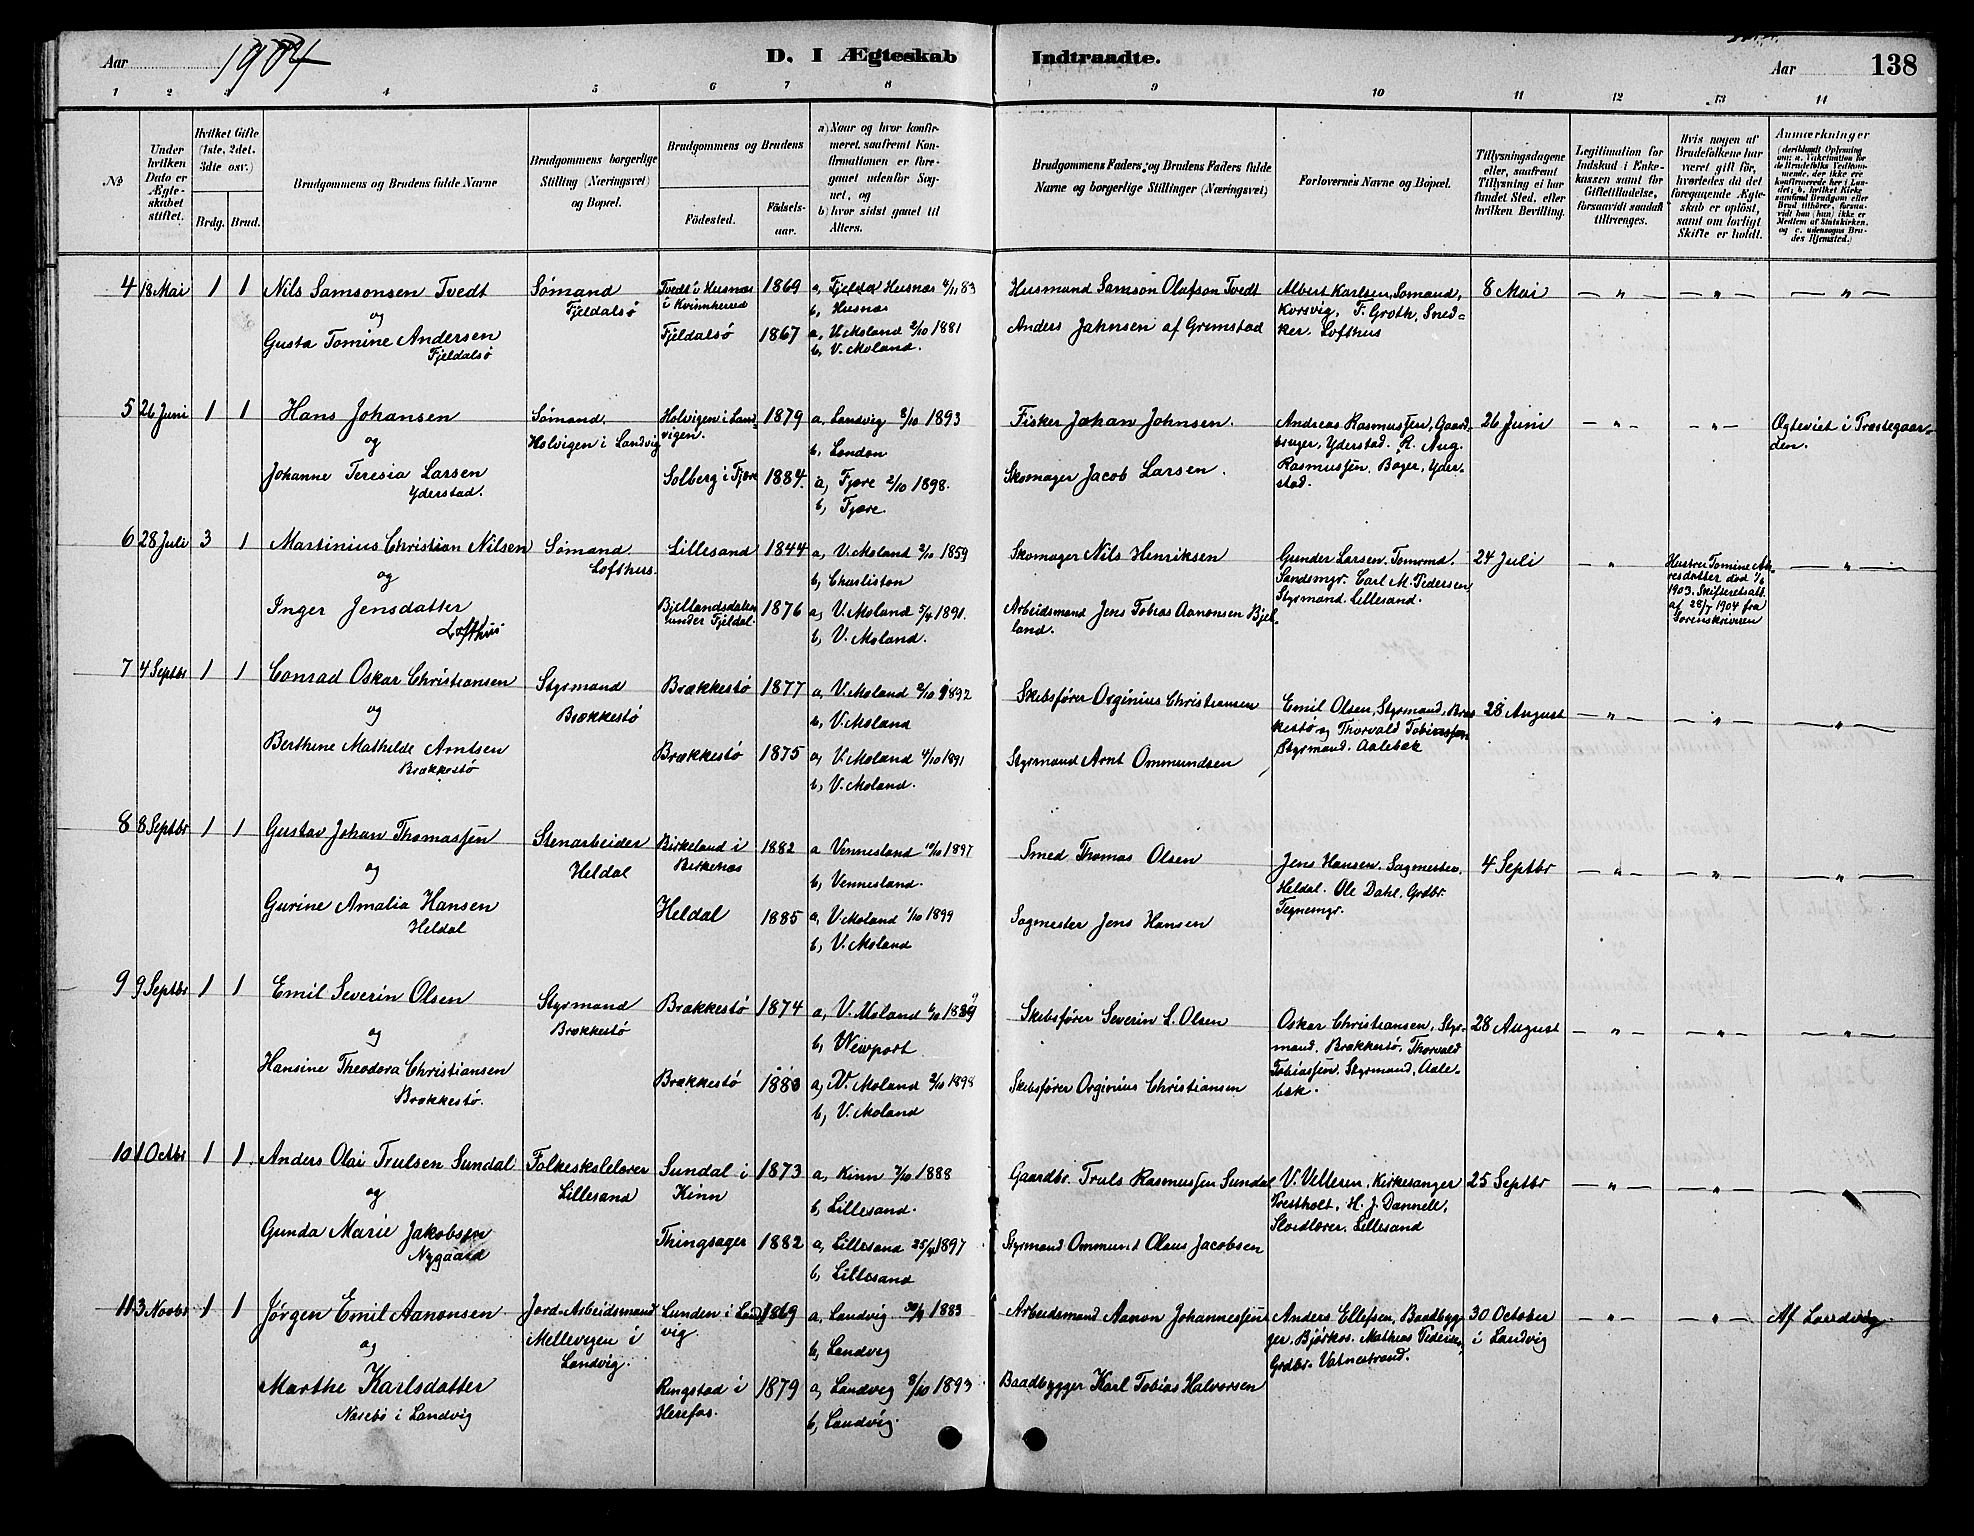 Aar 1904
D. I Ægteskab Indtraadte.
Aar
138
1 2 3 4 5 6 7 8 9 10 11 12 13 14
No
Under hvilken Dato er Ægteskabet stiftet.
Hvilket Gifte (1ste, 2det, 3dte osv.)
Brdg. Brud.
Brudgommens og Brudens fulde Navne
Brudgommens borgerlige Stilling (Næringsvei) og Bopæl.
Brudgommens og Brudens
Fødested. Fødselsaar.
a) Naar og hvor konfirmeret, saafremt Konfirmationen er foregaaet udenfor Sognet, og
b) hvor sidst gaaet til Alters.
Brudgommens Faders og Brudens Faders fulde Navne og borgerlige Stillinger (Næringsvei)
Forlovernes Navne og Bopæl.
Tillysningsdagene eller, saafremt Tillysning ei har fundet Sted, efter hvilken Bevilling.
Legitimation for Indskud i Enkekassen samt for Giftetilladelse, forsaavidt saadan tiltrænges.
Hvis nogen af Brudefolkene har været gift før, hvorledes da det foregaaende Ægteskab er opløst, samt om lovligt Skifte er holdt.
Anmærkninger
4 18 Mai 1 1 Nils Samsonsen Tvedt
og
Gusta Tomine Andersen
Fjeldalsö
Sømand
Fjeldalsö
Tvedt i Husnæs
i Kvinnhered 1869
Fjeldalsö 1867
a, Fjelsta Husnæs 4/11 83
b, Husnæs
a, V. Moland 2/10 1881
b, V. Moland.
Husmand Samson Olafson Tvedt
Anders Jahnsen af Grimstad
Albert Karlsen, Sømand,
Korsvig, T. Groth, Sned-
ker. Lofthus
8 Mai — " — — " — — " —
5 26 Juni 1 1 Hans Johansen
og
Johanne Teresia Larsen
Yderstad.
Sømand.
Holvigen i Landvig
Holvigen i Land
vigen. 1879
Solberg i Fjære 1884.
a, Landvig 8/10 1893
b, London
a, Fjære 2/10 1898.
b, Fjære.
Fisker Johan Johnsen.
Skomager Jacob Larsen.
Andreas Rasmussen, Gaard-
bruger, Yderstad. R. Aug.
Rasmussen. Bager, Yder-
stad.
26 Juni — " — — " —
Ogteviet i Præstegaar-
den.
6 28 Juli 3 1 Martinius Christian Nilsen
og
Inger Jensdatter
Lofthus
Sømand
Lofthus.
Lillesand 1844
Bjellandsdalen
under Fjeldal. 1876
a, V. Moland 2/10 1859
b, Charliston
a, V. Moland 5/4 1891.
b, V. Moland.
Skomager Nils Henriksen
Arbeidsmand Jens Tobias Aanonsen Bjel-
land.
Gunder Larsen. Tømrmd.
Sandsmyr. Carl M. Pedersen
Styrmand. Lillesand.
24 Juli — " —
Hustru Tomine An-
resdatter død 1/6
1903. Skifteretsatt.
af 28/7 1904 fra
Sorenskriveren
— " —
7 4 Septbr 1 1 Conrad Oskar Christiansen
og
Berthine Mathilde Arntsen
Brækkestö
Styrmand
Brækkestö
Brækkestö 1877
Brækkestö 1875
a, V. Moland 2/10 1892
b, V. Moland
a, V. Moland 4/10 1891
b, V. Moland.
Skibsfører Orginius Christiansen
Styrmand Arnt Ommundsen
Emil Olsen, Styrmand, Bræk
kestö og Thorvald Tobiassen
Styrmand. Aalebæk
28 August — " — — " — — " —
8 8 Septbr 1 1 Gustav Johan Thomassen
og
Gurine Amalia Hansen
Heldal
Stenarbeider
Heldal
Birkeland i
Birkenæs 1882
Heldal 1885
a Vennesland 10/10 1897
b, Vennesland.
a, V. Moland 1/10 1899
b, V. Moland
Smed Thomas Olsen
Sagmester Jens Hansen
Jens Hansen. Sagmester,
Heldal. Ole Dahl, Grdbr.
Tegnemyr.
4 Septbr — " — — " — — " —
9 9 Septbr 1 1 Emil Severin Olsen
og
Hansine Theodora Christiansen
Brækkestö.
Styrmand
Brækkestö
Brækkestö 1874
Brækkestö 1883
a, V. Moland 6/10 1889
b, Newport
a, V. Moland 2/10 1898
b, V. Moland
Skibsfører Severin S. Olsen
Skibsfører Orginius Christiansen
Oskar Christiansen, Styr-
mand. Brækkestö, Thorvald
Tobiassen. Styrmand, Aale-
bæk.
28 August — " — — " — — " —
10 1 Octbr 1 1 Anders Olai Trulsen Sundal
og
Gunda Marie Jakobsen
Nygaard
Folkeskolelærer
Lillesand
Sundal i
Kinn 1873
Thingsager 1882
a, Kinn 7/10 1888
b, Lillesand.
a, Lillesand 25/4 1897
b, Lillesand
Gaardbr. Truls Rasmussen Sundal
Styrmand Ommund Olaus Jacobsen
V. Vellesen, Kirkesanger
Prestholt, H. J. Dannele,
Sløidlærer, Lillesand
25 Septbr — " — — " —
11 3 Novbr 1 1 Jørgen Emil Aanonsen
og
Marthe Karlsdatter
Næsebö i Landvig
Jord-Arbeidsmand
Mellevigen i
Landvig.
Lunden i Land
vig. 1869
Ringstad i
Herefos. 1879
a, Landvig 30/9 1883
b, Landvig
a, Landvig 8/10 1893
b, Landvig.
Arbeidsmand Aanon Johannessen
Baadbygger Karl Tobias Halvorsen
Anders Ellefsen, Baadbyg-
ger, Bjørkos. Mathias Pedersen,
Grdbr. Vatnestrand.
30 October
i Landvig — " — — " —
Af Landvig.